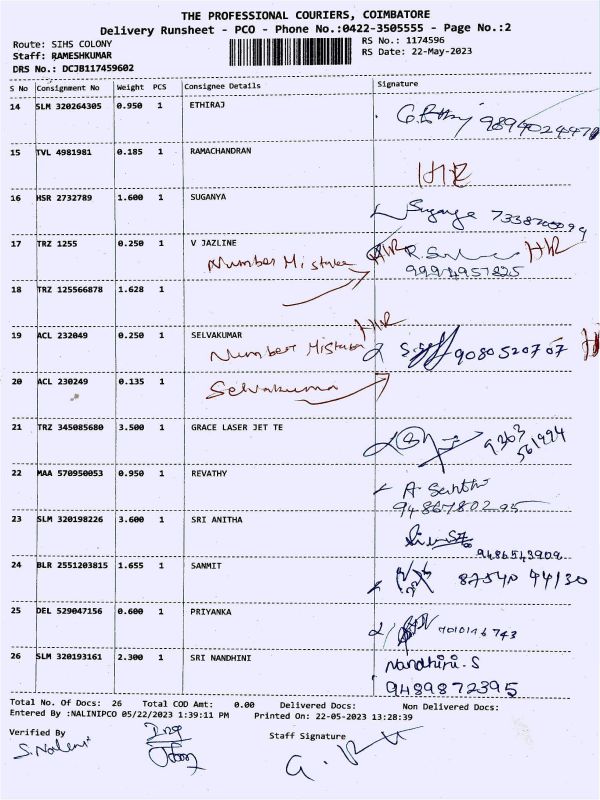 THE PROFESSIONAL COURIERS, COIMBATORE
Delivery Runsheet - PCO - Phone No.:0422-3505555 - Page No.:2
Route: SIHS COLONY
Staff: RAMESHKUMAR
DRS No.: DCJB117459602
RS No.: 1174596
RS Date: 22-May-2023
S No Consignment No Weight PCS Consignee Details Signature
14 SLM 320264305 0.950 1 ETHIRAJ
15 TVL 4981981 0.185 1 RAMACHANDRAN
HR
16 HSR 2732789 1.600 1 SUGANYA
Suganya
17 TRZ 1255 0.250 1 V JAZLINE
Number Mistake HR HR
18 TRZ 125566878 1.628 1
19 ACL 232049 0.250 1 SELVAKUMAR
Number Mistake HR 9080520707
20 ACL 230249 0.135 1
Selvakumar
21 TRZ 345085680 3.500 1 GRACE LASER JET TE
9363
561994
22 MAA 570950053 0.950 1 REVATHY
A Santhi
9486780295
23 SLM 320198226 3.600 1 SRI ANITHA
9486543909
24 BLR 2551203815 1.655 1 SANMIT
87540 44130
25 DEL 529047156 0.600 1 PRIYANKA
26 SLM 320193161 2.300 1 SRI NANDHINI
Nandhini.S
9489872395
Total No. Of Docs: 26 Total COD Amt: 0.00 Delivered Docs: Non Delivered Docs:
Entered By :NALINIPCO 05/22/2023 1:39:11 PM Printed On: 22-05-2023 13:28:39
Verified By Staff Signature
S.Nalini